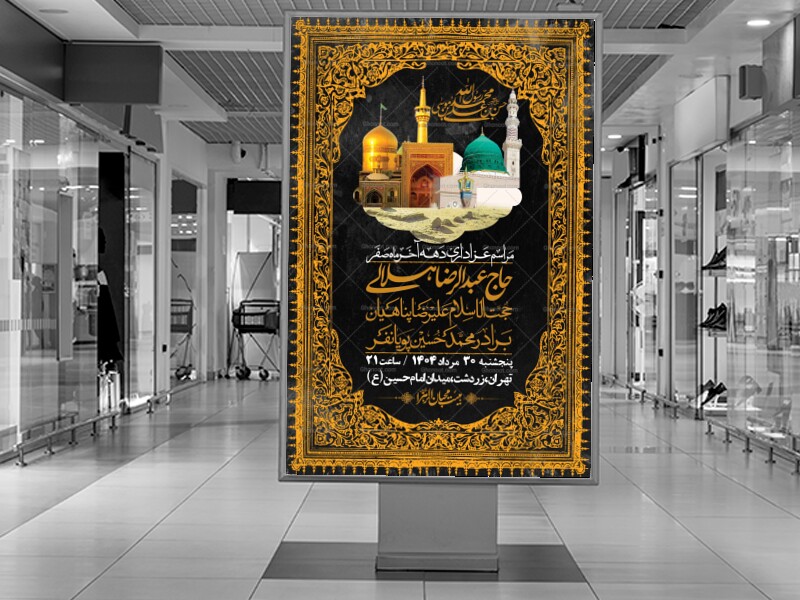 مراسم عزاداری دهه آخر ماه صفر
حاج عبدالرضا هلالی
حجت الاسلام علیرضا پناهیان
برادر محمدحسین پویانفر
پنجشنبه ۳۰ مرداد ۱۴۰۴ / ساعت ۲۱
تهران، زردشت، میدان امام حسین (ع)